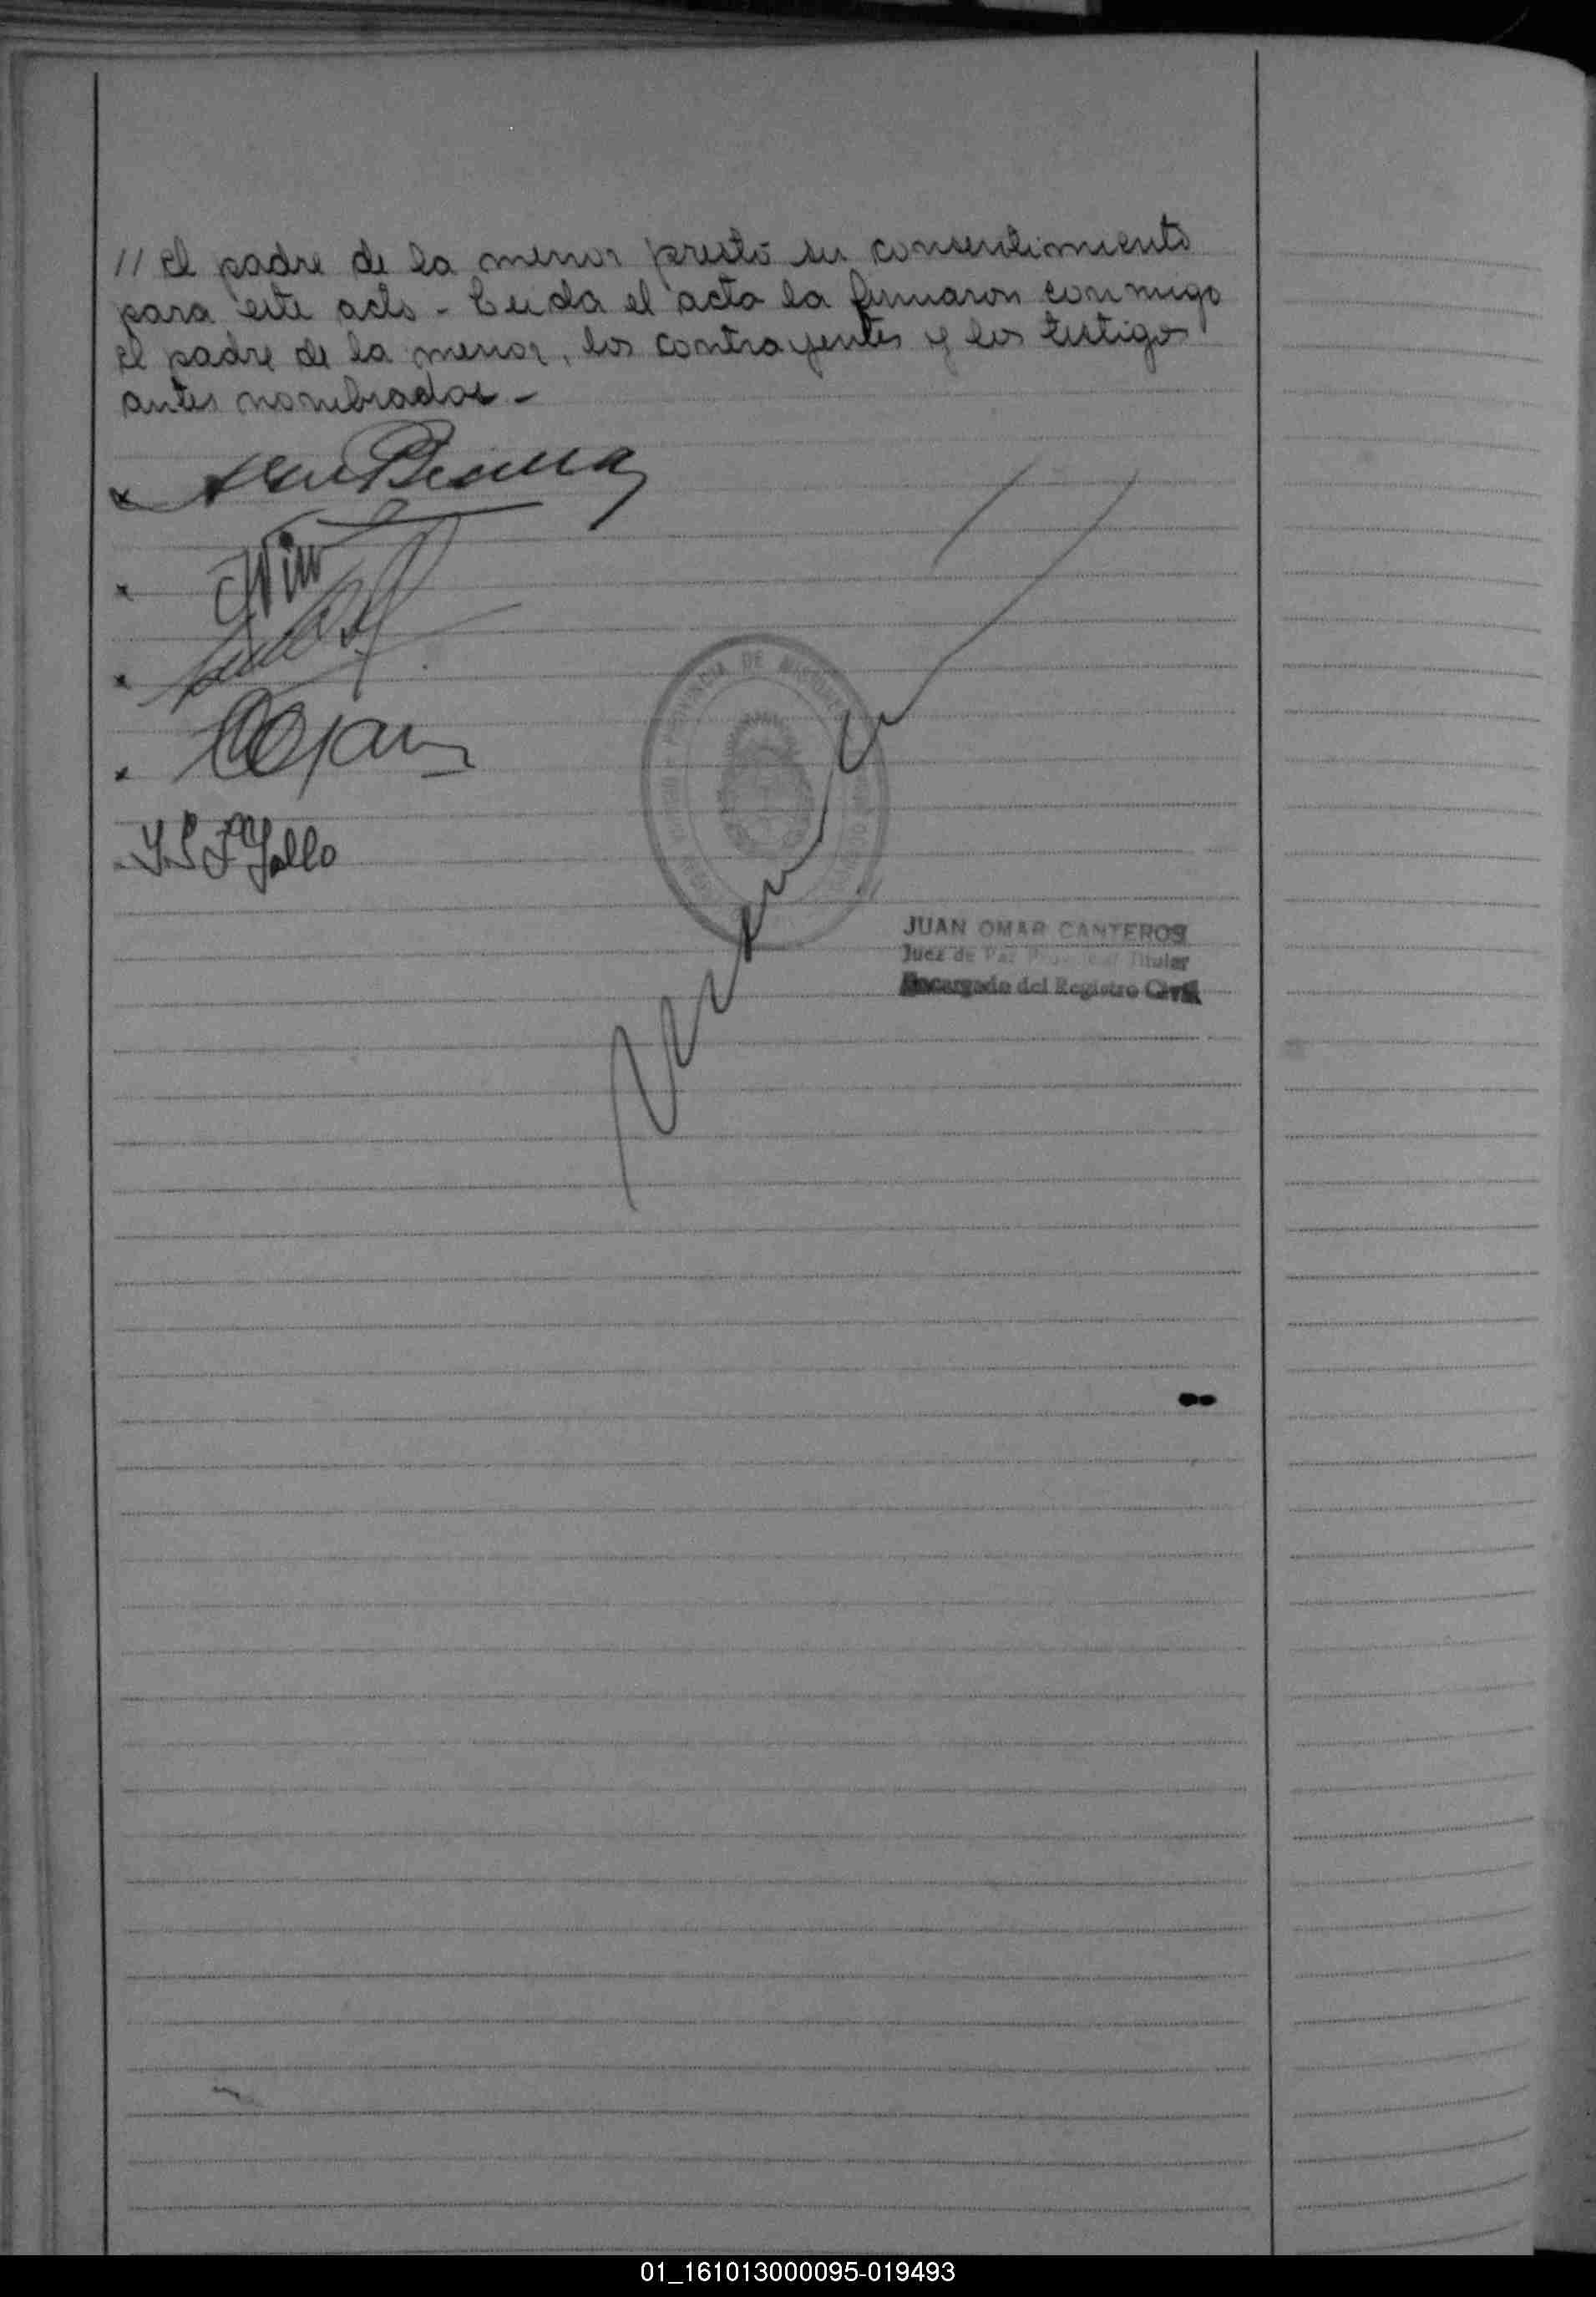 // El padre de la menor prestó su consentimiento
para este acto - Leida el acta la firmaron conmigo
el padre de la menor, los contrayentes y los testigos
antes nombrados -
PROVINCIA DE MISIONES
JUAN OMAR CANTEROS
Juez de Paz Titular
Encargado del Registro Civil
01_161013000095-019493